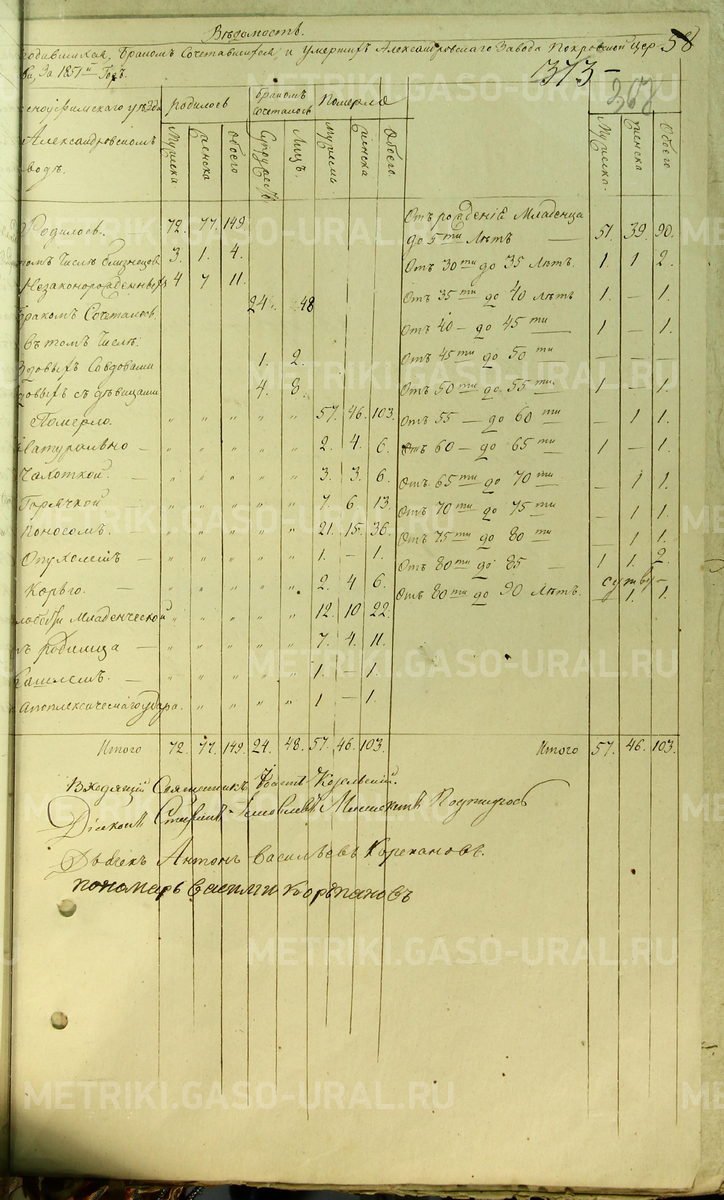 Вѣдомость.
родившихся, бракомъ сочетавшихся и умершихъ Александровскаго Завода Покровской цер 58
За 1851й Годъ. 373-
368
Красноуфимскаго уѣзда родилось бракомъ сочеталось Померло
Александровскомъ мужеска женска обоего Супружествъ Лицъ мужеска женска Обоего мужеска женска Обоего
водѣ.
Родилось. 72. 77. 149. Отъ рожденія Младенца
до 5ти Лѣтъ — 51. 39. 90.
томъ числѣ близнецовъ 3. 1. 4. Отъ 30ти до 35 Лѣтъ. 1. 1. 2.
Незаконорожденныхъ 4 7 11. Отъ 35ти до 40 лѣтъ 1. — 1.
Бракомъ Сочеталось. 24. 48 Отъ 40 — до 45ти 1. — 1.
въ томъ числѣ: Отъ 45ти до 50ти — — —
вдовыхъ Совдовами 1. 2. Отъ 50ти до 55ти 1. — 1.
вдовыхъ съ дѣвицами 4. 8. Отъ 55 — до 60ти — 1 1.
Померло. " " " " " 57. 46. 103. Отъ 60 — до 65ти 1 — 1.
Натурально — " " " " " 2. 4. 6. Отъ 65ти до 70ти — 1 1.
Чахоткой. — " " " " " 3. 3. 6. Отъ 70ти до 75ти — 1 1.
Горячкой — " " " " " 7. 6. 13. Отъ 75ти до 80ти — 1 1.
Поносомъ. — " " " " " 21. 15. 36. Отъ 80ти до 85 — 1 1. 2.
Опухолью — " " " " " 1. — 1. Отъ 80ти до 90 Лѣтъ. — 1. 1.
Корью. — " " " " " 2. 4 6.
Младенческой " " " " " 12. 10 22.
родимца — " " " " " 7. 4. 11.
Кашлемъ. — " " " " " 1. — 1.
Апоплексическаго удара. " " " " " 1 — 1.
Итого 72. 77. 149. 24. 48. 57. 46. 103. Итого 57. 46. 103.
Священникъ
Діаконъ
Дьячекъ Антонъ Васильевъ Корепановъ.
пономарь Василій Корѣпановъ
METRIKI.GASO-URAL.RU